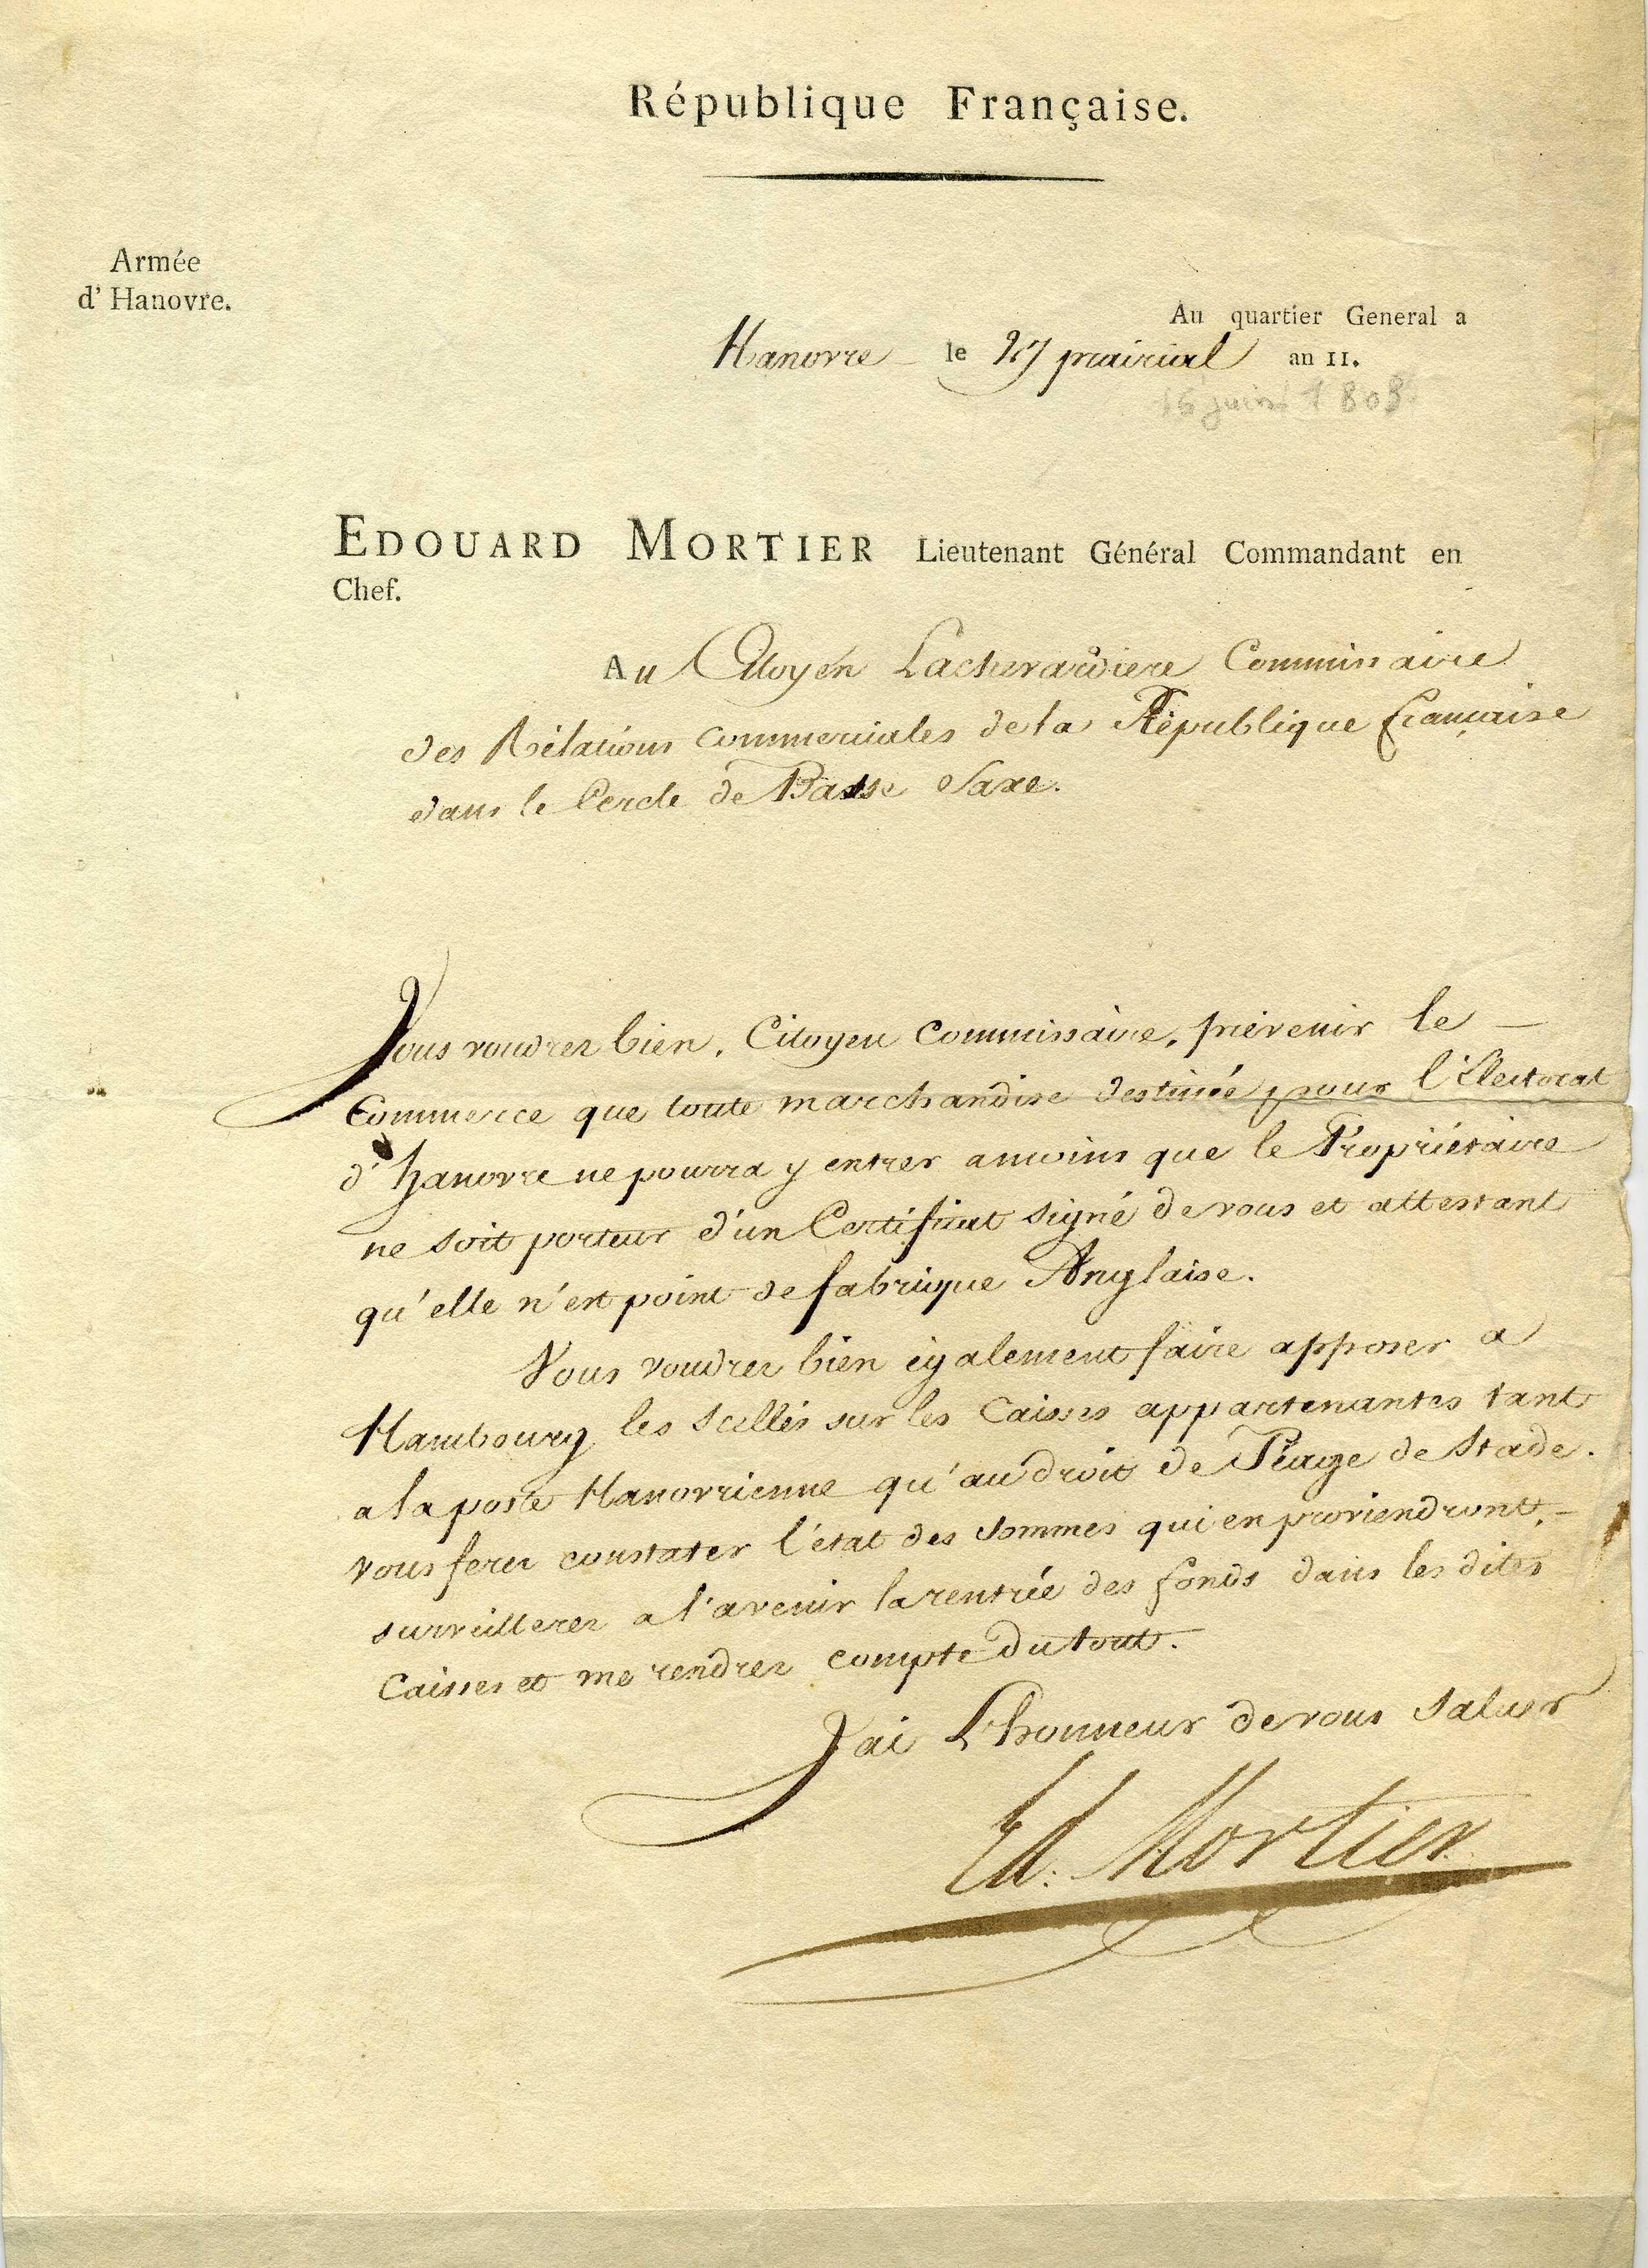 République Française.
Armée
d' Hanovre.
Au quartier General a
Hanovre le 27 prairial an 11.
16 juin 1803
EDOUARD MORTIER Lieutenant Général Commandant en
Chef.
Au Citoyen Lachevardiere Commissaire
des Rélations commerciales de la République française
dans le Cercle de Basse Saxe.
Vous voudrez bien, Citoyen Commissaire, prévenir le
Commerce que toute marchandise destinée pour l'Electorat
d'hanovre ne pourra y entrer amoins que le Propriétaire
ne soit porteur d'un Certificat signé de vous et attestant
qu'elle n'est point de fabrique Anglaise.
Vous voudrez bien également faire apposer a
Hambourg les scellés sur les Caisses appartenantes tant
a la poste Hanovrienne qu'au droit de Péage de Stade.
vous ferez constater l'état des sommes qui en proviendront,
surveillerez a l'avenir la rentrée des fonds dans les dites
Caisses et me rendrez compte du tout.
J'ai L'honneur de vous saluer
Ed. Mortier